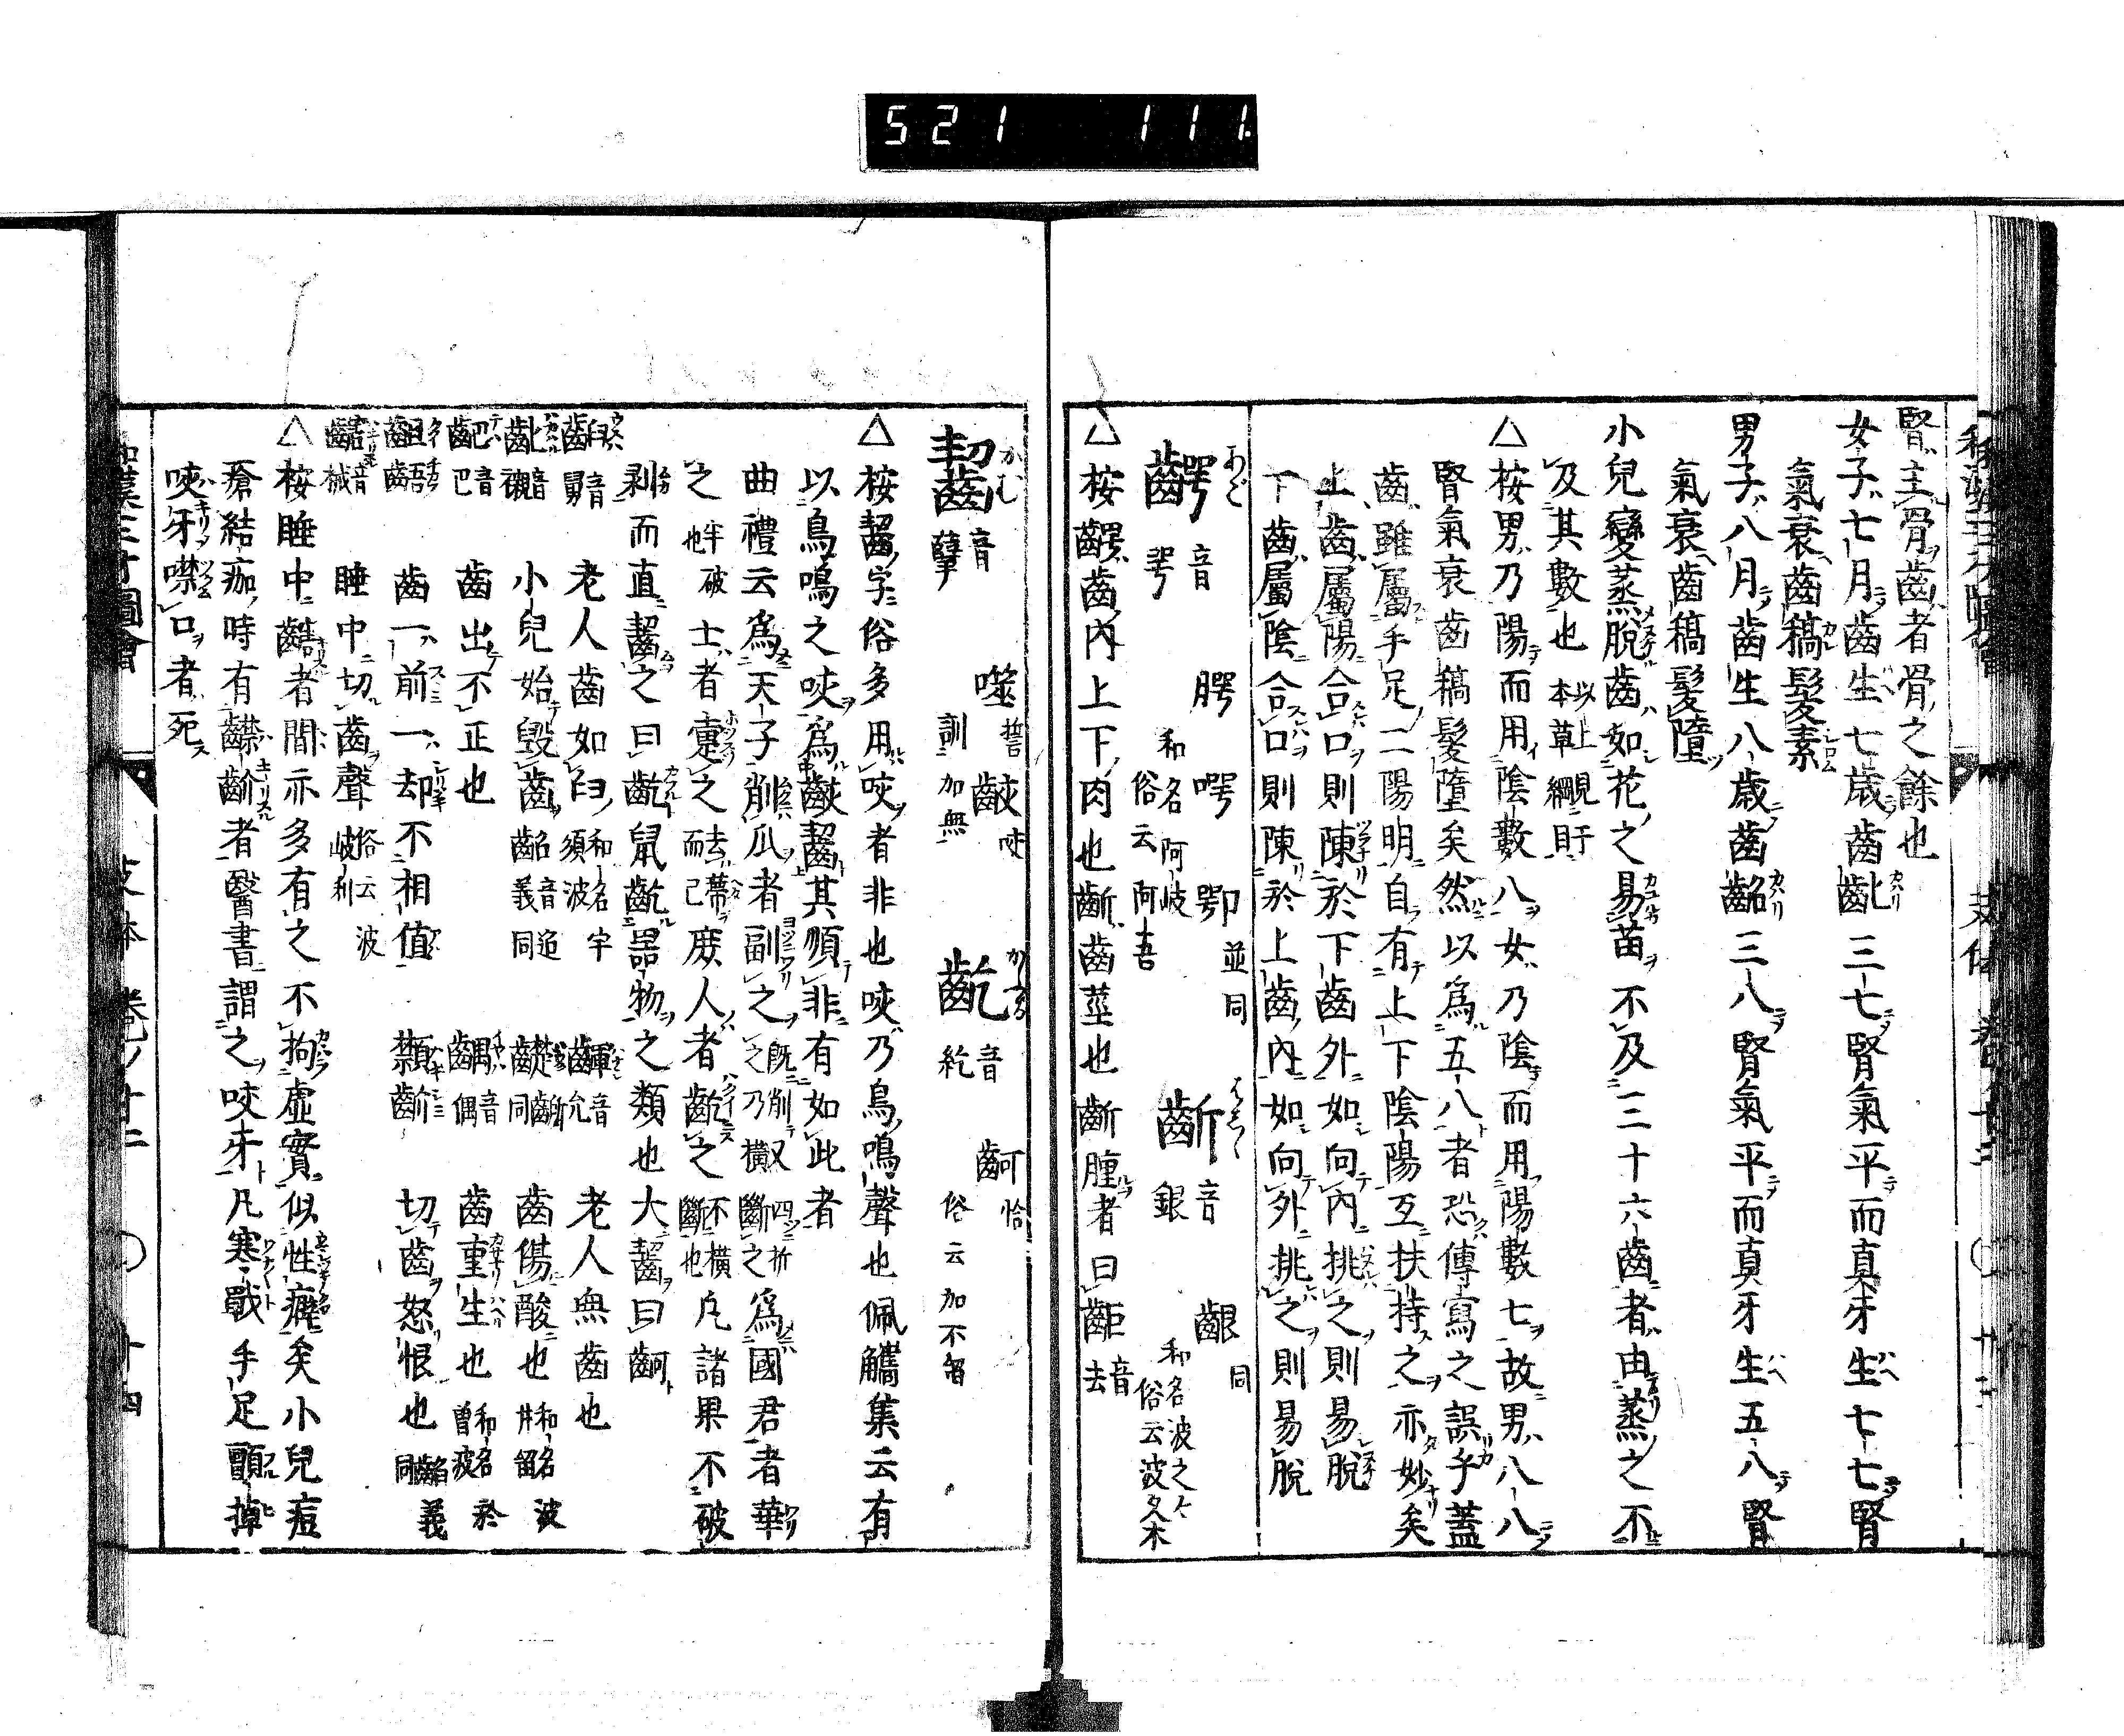 521 111.
腎主骨齒者骨之餘也
女子七月齒生七歳齒齔三七腎氣平而真牙生七七腎
氣衰齒槁髮素
男子八月齒生八歳齒齠三八腎氣平而真牙生五八腎
氣衰齒槁髮墮
小兒變蒸脫齒如花之易苗不及三十六齒者由蒸之不
及其數也 以上見于本草綱目
△按男乃陽而用陰數八女乃陰而用陽數七故男八八
腎氣衰齒槁髮墮矣然以爲五八者恐傳寫之誤乎蓋
齒雖屬手足二陽明自有上下陰陽互扶持之亦妙矣
上齒屬陽合口則陳於下齒外如向内挑之則易脫
下齒屬陰合口則陳於上齒内如向外挑之則易脫
齶 あご 音咢 腭 㗁 卾 並同 和名阿岐 俗云阿吾
齗 はぐき 音銀 齦 同 和名波之々 俗云波久木
△按齶齒内上下肉也齗齒莖也齗腫者曰䶙 音去
齧 かむ 音孽 噬 誓 齩 咬 訓加無
齕 音紇 䶗 恰 俗云加不留
△按齧字俗多用咬者非也咬乃鳥鳴聲也佩觿集云有
以鳥鳴之咬爲齩齧其順非有如此者
曲禮云爲天子削瓜者副之 既削又四折之乃橫斷之 爲國君者華
之 半破也 士者疐之 去蔕而已 庶人者齕之 不橫斷也 凡諸果不破
剥而直齧之曰齕鼠齕器物之類也大齧曰䶗
齨 音舅 老人齒如臼 和名宇須波 齳 音允 老人無齒也
齔 音襯 小兒始毀齒 齠音迢義同 齼 齭同 齒傷酸也 和名波井留
䶕 音巴 齒出不正也 齵 音偶 齒重生也 和名於曽波
齟齬 齒一前一却不相值 噤齘 切齒怒恨也 齝義同
睡中切齒聲 俗云波岐利
△按睡中䶝者間亦多有之不拘虛實似性癖矣小兒痘
瘡結痂時有齽齘者醫書謂之咬牙凡寒戰手足顫掉
咬牙噤口者死
和漢三才圖會 支體 巻ノ十二 〇 十四